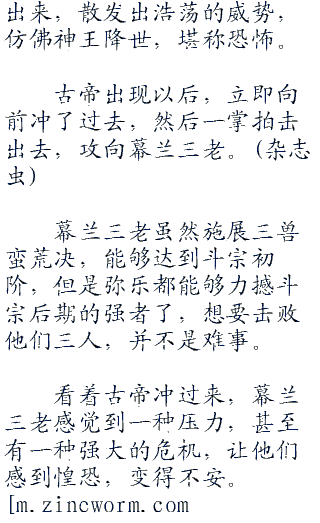 出来，散发出浩荡的威势，
仿佛神王降世，堪称恐怖。
古帝出现以后，立即向
前冲了过去，然后一掌拍击
出去，攻向幕兰三老。(杂志
虫)
幕兰三老虽然施展三兽
蛮荒决，能够达到斗宗初
阶，但是弥乐都能够力撼斗
宗后期的强者了，想要击败
他们三人，并不是难事。
看着古帝冲过来，幕兰
三老感觉到一种压力，甚至
有一种强大的危机，让他们
感到惶恐，变得不安。
[m.zincworm.com